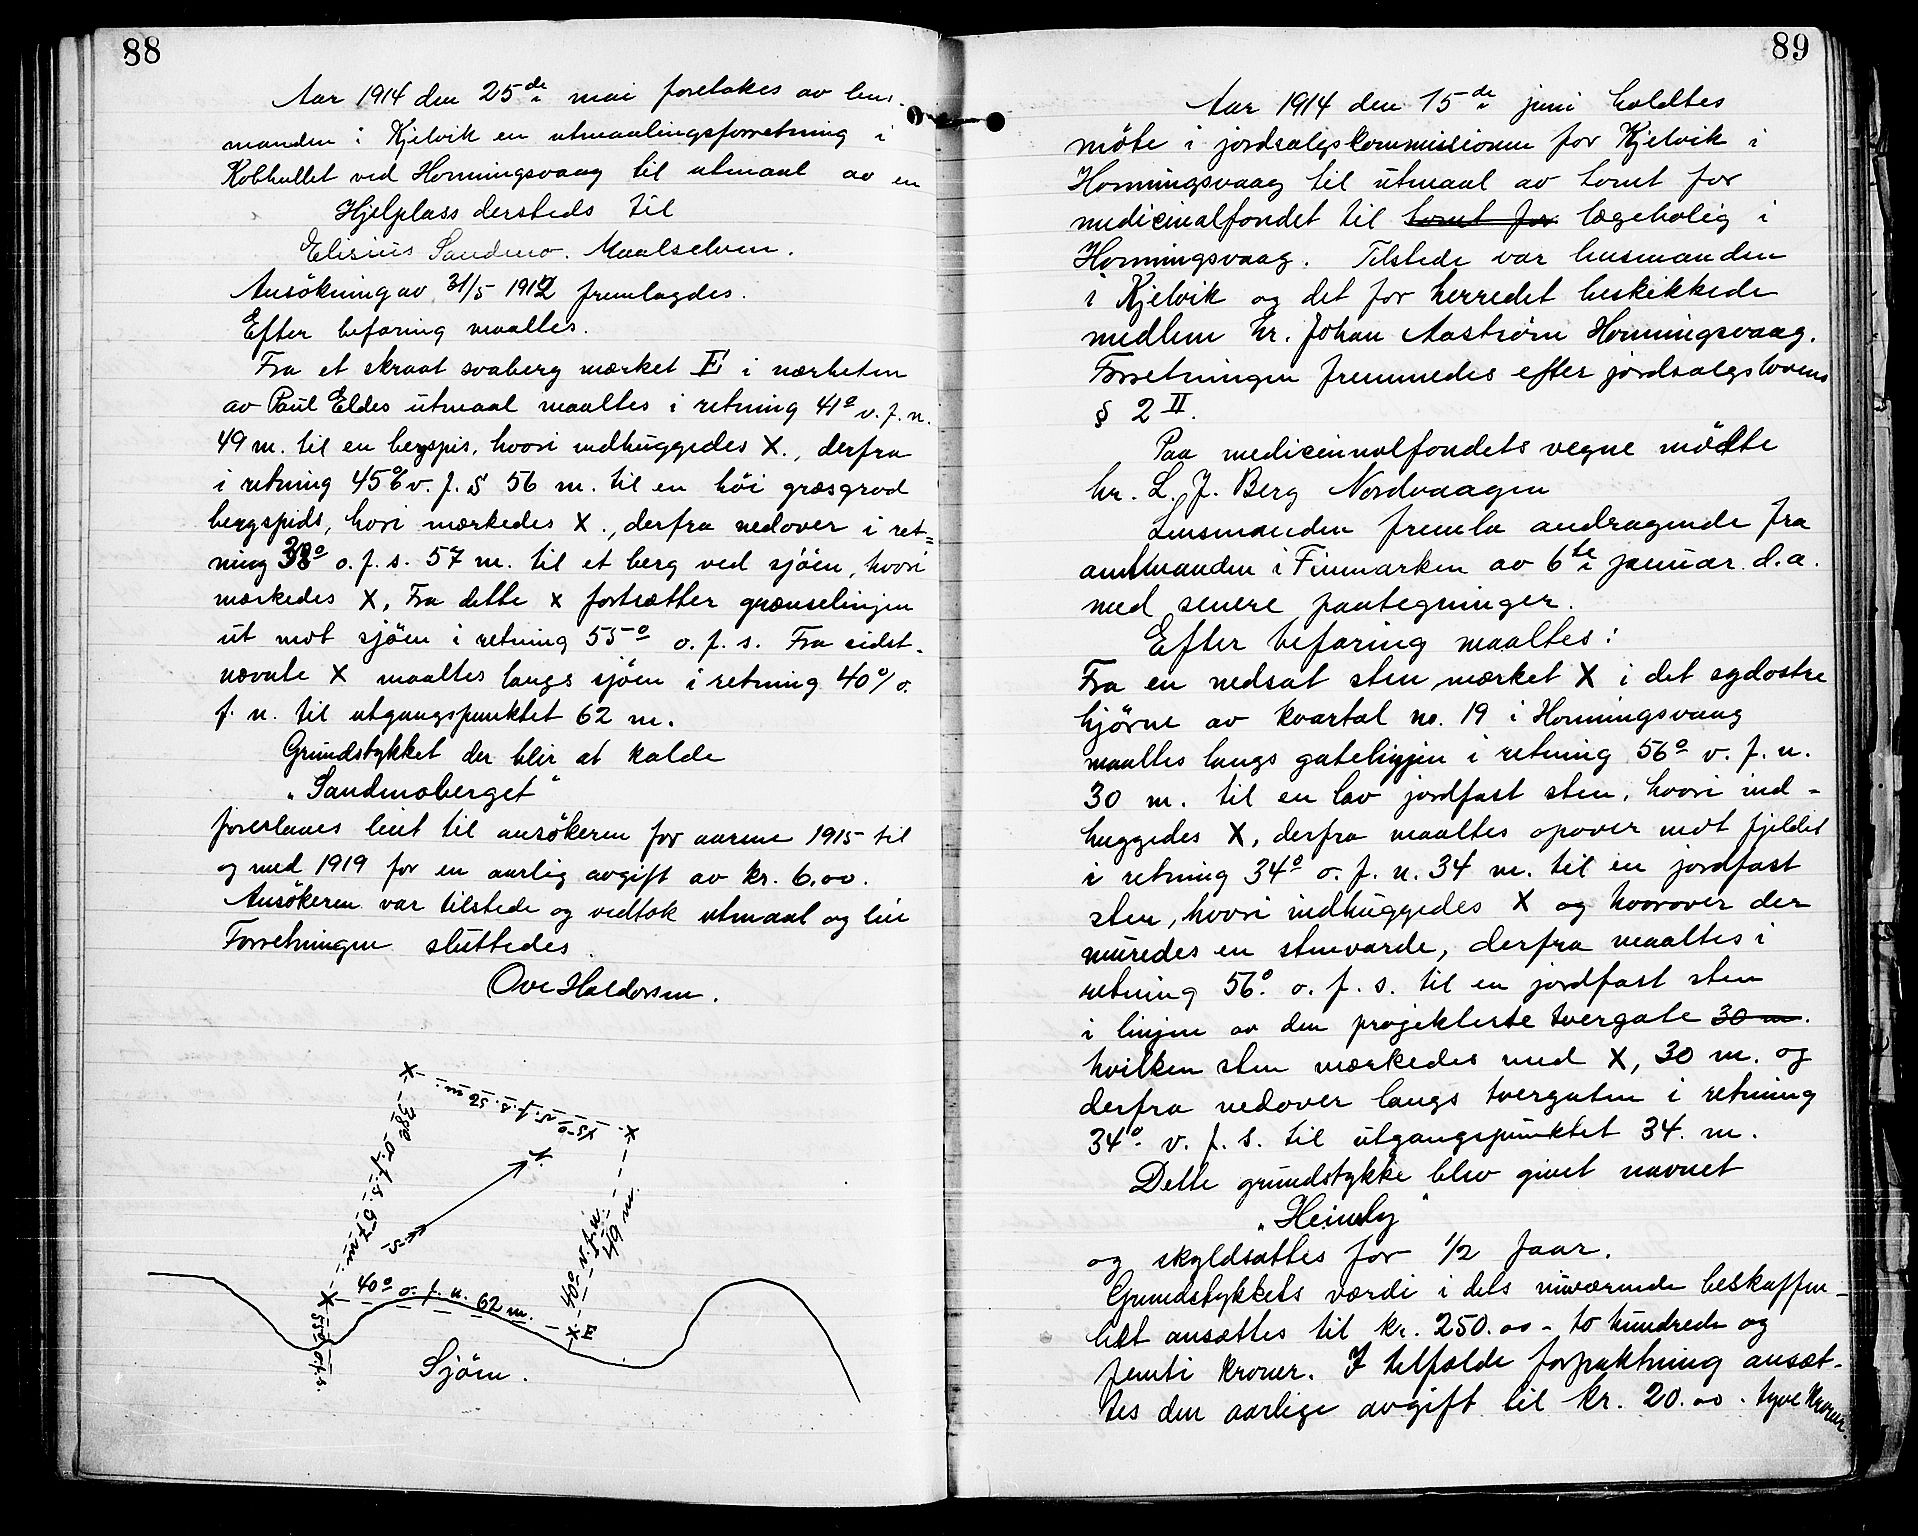 88
Aar 1914 den 25de mai foretokes av lens-
manden i Kjelvik en utmaalingsforretning i
Kobhullet ved Honningsvaag til utmaal av en
Hjelplass dersteds til
Elisius Sandmo. Maalselven.
Ansökning av 31/5 1912 fremlagdes.
Efter befaring maaltes.
Fra et skraat svaberg mærket E i nærheten
av Paul Eldes utmaal maaltes i retning 41° v. f. n.
49 m. til en bergspis, hvori indhuggedes X., derfra
i retning 45° v. f. s 56 m. til en höi græsgrod
bergspids, hvori mærkedes X., derfra nedover i ret=
ning 38° o. f. s. 57 m. til et berg ved sjöen, hvori
mærkedes X, Fra dette x fortsætter grænselinjen
ut mot sjöen i retning 55° o. f. s. Fra sidst-
nævnte X maaltes langs sjöen i retning 40° o.
f. n. til utgangspunktet 62 m.
Grundstykket der blir at kalde
"Sandmoberget"
foreslaaes leiet til ansökeren for aarene 1915 til
og med 1919 for en aarlig avgift av kr. 6.00.
Ansökeren var tilstede og vedtok utmaal og leie
Forretningen sluttedes.
Ove Haldorsen.
X 45° v. f. s. 56 m. X
38° o. f. s. 57 m.
N.
S.
49 m.
40° o. f. n. 62 m.
X E
55° o. f. s.
Sjöen.
89
Aar 1914 den 15de juni holdtes
möte i jordsalgskommissionen for Kjelvik i
Honningsvaag til utmaal av tomt for
medicinalfondet til tomt for lægebolig i
Honningsvaag. Tilstede var lensmanden
i Kjelvik og det for herredet beskikkede
medlem hr. Johan Aaström Honningsvaag.
Forretningen fremmedes efter jordsalgslovens
§ 2 II.
Paa medicinalfondets vegne mödte
hr. L. J. Berg Nordvaagen
Lensmanden fremla andragende fra
amtmanden i Finmarken av 6te januar d.a.
med senere paategninger.
Efter befaring maaltes:
Fra en nedsat sten mærket X i det sydostre
hjörne av kvartal no. 19 i Honningsvaag
maaltes langs gatelinjen i retning 56° v. f. n.
30 m. til en lav jordfast sten, hvori ind-
huggedes X, derfra maaltes opover mot fjeldet
i retning 34° o. f. n. 34 m. til en jordfast
sten, hvori indhuggedes X og hvorover der
muredes en stenvarde, derfra maaltes i
retning 56° o. f. s. til en jordfast sten
i linjen av den projekterte tvergate 30 m.
hvilken sten mærkedes med X, 30 m. og
derfra nedover langs tvergaten i retning
34° v. f. s. til utgangspunktet 34. m.
Dette grundstykke blev givet navnet
"Heimly"
og skyldsattes for 1/2 faar.
Grundstykkets værdi i dets nuværende beskaffen-
het ansættes til kr. 250.00 - to hundrede og
femti kroner. I tilfælde forpaktning ansæt-
tes den aarlige avgift til kr. 20.00 - tyve kroner.